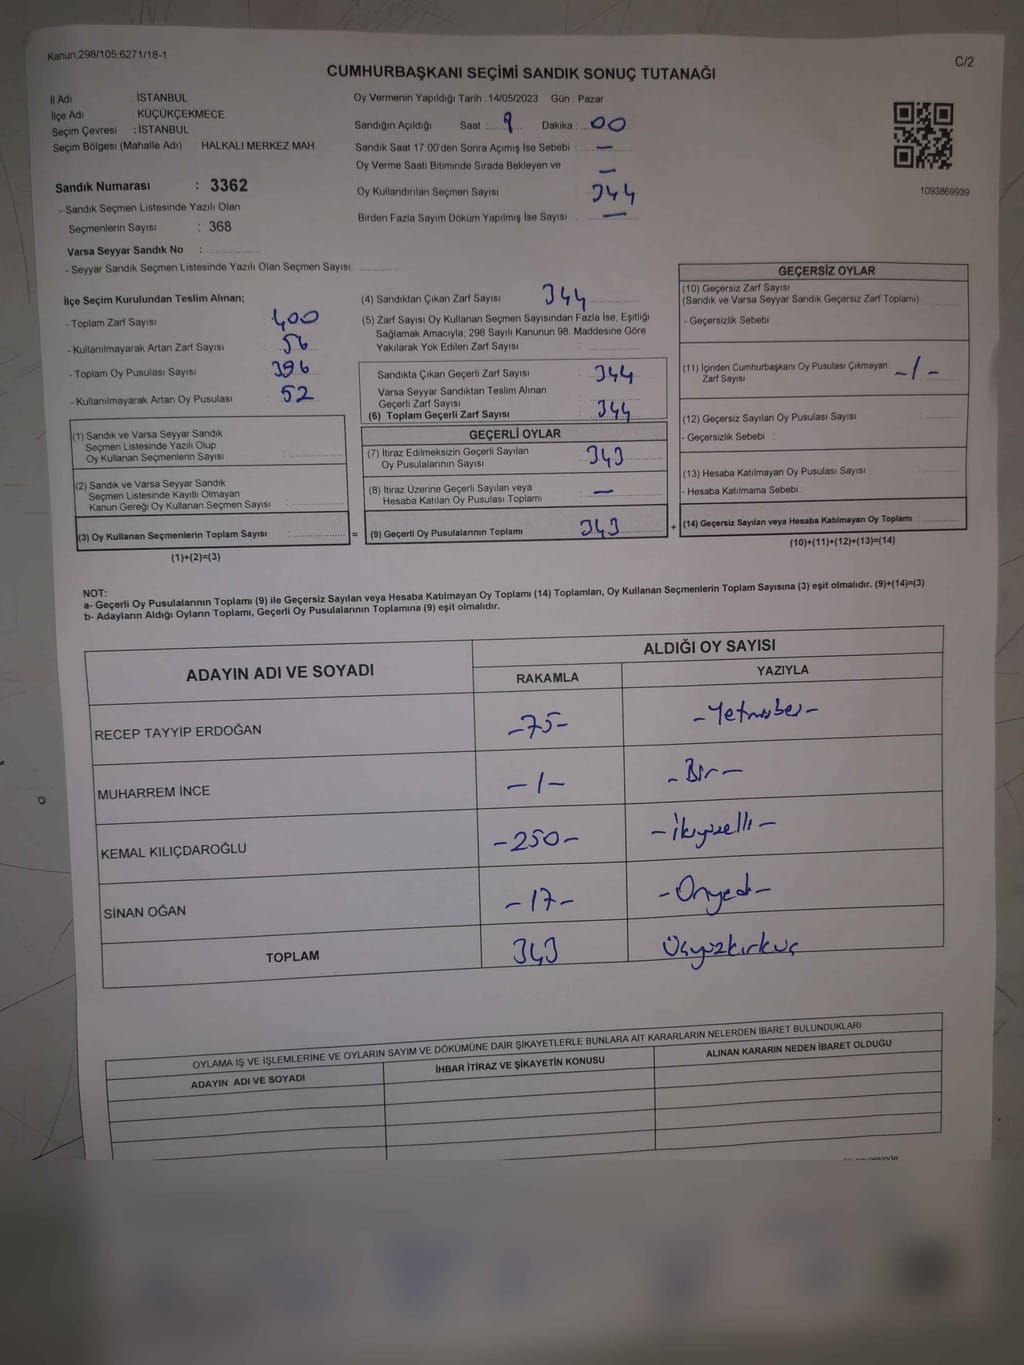 Kanun:298/105;6271/18-1
C/2
CUMHURBAŞKANI SEÇİMİ SANDIK SONUÇ TUTANAĞI
İl Adı : İSTANBUL
İlçe Adı : KÜÇÜKÇEKMECE
Seçim Çevresi : İSTANBUL
Seçim Bölgesi (Mahalle Adı) HALKALI MERKEZ MAH.
Oy Vermenin Yapıldığı Tarih : 14/05/2023 Gün : Pazar
Sandığın Açıldığı Saat : 9 Dakika : 00
Sandık Saat 17:00'den Sonra Açımış İse Sebebi : —
Oy Verme Saati Bitiminde Sırada Bekleyen ve
Oy Kullandırılan Seçmen Sayısı : — 344
Birden Fazla Sayım Döküm Yapılmış İse Sayısı : —
1093869939
Sandık Numarası : 3362
- Sandık Seçmen Listesinde Yazılı Olan
Seçmenlerin Sayısı : 368
Varsa Seyyar Sandık No :
- Seyyar Sandık Seçmen Listesinde Yazılı Olan Seçmen Sayısı
İlçe Seçim Kurulundan Teslim Alınan;
- Toplam Zarf Sayısı 400
- Kullanılmayarak Artan Zarf Sayısı 56
- Toplam Oy Pusulası Sayısı 396
- Kullanılmayarak Artan Oy Pusulası 52
(1) Sandık ve Varsa Seyyar Sandık
Seçmen Listesinde Yazılı Olup
Oy Kullanan Seçmenlerin Sayısı :
(2) Sandık ve Varsa Seyyar Sandık
Seçmen Listesinde Kayıtlı Olmayan
Kanun Gereği Oy Kullanan Seçmen Sayısı :
(3) Oy Kullanan Seçmenlerin Toplam Sayısı :
(1)+(2)=(3)
=
(4) Sandıktan Çıkan Zarf Sayısı 344
(5) Zarf Sayısı Oy Kullanan Seçmen Sayısından Fazla İse, Eşitliği
Sağlamak Amacıyla; 298 Sayılı Kanunun 98. Maddesine Göre
Yakılarak Yok Edilen Zarf Sayısı :
Sandıkta Çıkan Geçerli Zarf Sayısı : 344
Varsa Seyyar Sandıktan Teslim Alınan
Geçerli Zarf Sayısı :
(6) Toplam Geçerli Zarf Sayısı : 344
GEÇERLİ OYLAR
(7) İtiraz Edilmeksizin Geçerli Sayılan
Oy Pusulalarının Sayısı : 343
(8) İtiraz Üzerine Geçerli Sayılan veya
Hesaba Katılan Oy Pusulası Toplamı : —
(9) Geçerli Oy Pusulalarının Toplamı : 343
+
GEÇERSİZ OYLAR
(10) Geçersiz Zarf Sayısı
(Sandık ve Varsa Seyyar Sandık Geçersiz Zarf Toplamı)
- Geçersizlik Sebebi
(11) İçinden Cumhurbaşkanı Oy Pusulası Çıkmayan
Zarf Sayısı -1-
(12) Geçersiz Sayılan Oy Pusulası Sayısı
- Geçersizlik Sebebi :
(13) Hesaba Katılmayan Oy Pusulası Sayısı
- Hesaba Katılmama Sebebi :
(14) Geçersiz Sayılan veya Hesaba Katılmayan Oy Toplamı :
(10)+(11)+(12)+(13)=(14)
NOT:
a- Geçerli Oy Pusulalarının Toplamı (9) ile Geçersiz Sayılan veya Hesaba Katılmayan Oy Toplamı (14) Toplamları, Oy Kullanan Seçmenlerin Toplam Sayısına (3) eşit olmalıdır. (9)+(14)=(3)
b- Adayların Aldığı Oyların Toplamı, Geçerli Oy Pusulalarının Toplamına (9) eşit olmalıdır.
ADAYIN ADI VE SOYADI ALDIĞI OY SAYISI
RAKAMLA YAZIYLA
RECEP TAYYİP ERDOĞAN -75- -Yetmişbeş-
MUHARREM İNCE -1- -Bir-
KEMAL KILIÇDAROĞLU -250- -ikiyüzelli-
SİNAN OĞAN -17- -Onyedi-
TOPLAM 343 Üçyüzkırküç
OYLAMA İŞ VE İŞLEMLERİNE VE OYLARIN SAYIM VE DÖKÜMÜNE DAİR ŞİKAYETLERLE BUNLARA AİT KARARLARIN NELERDEN İBARET BULUNDUKLARI
ADAYIN ADI VE SOYADI İHBAR İTİRAZ VE ŞİKAYETİN KONUSU ALINAN KARARIN NEDEN İBARET OLDUĞU